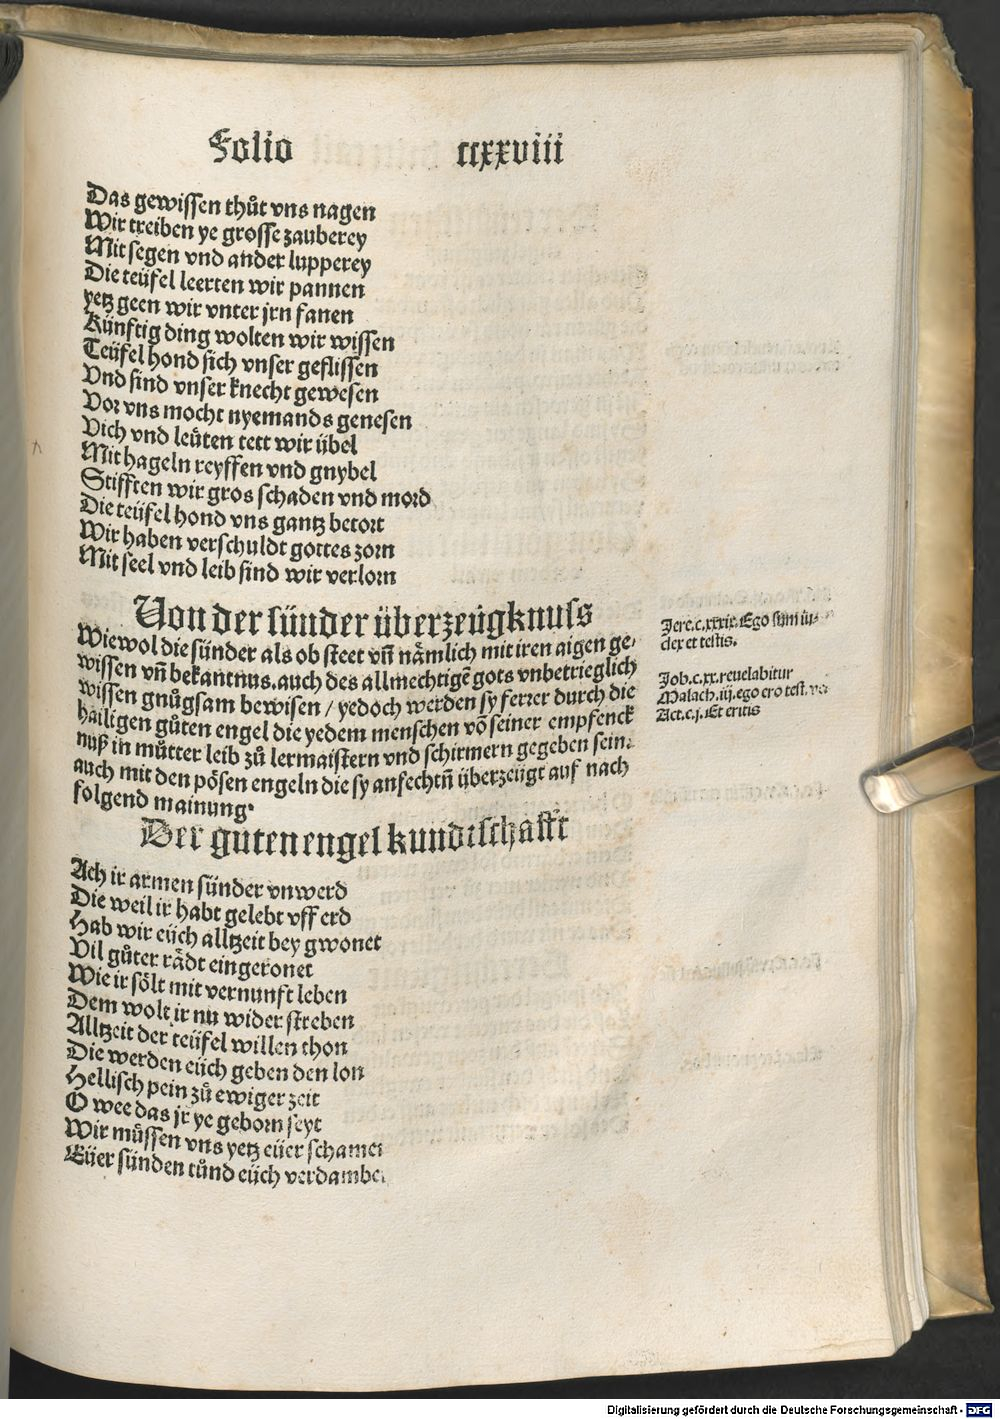 Folio ccxxviii
Das gewissen thůt vns nagen
Wir treiben ye grosse zauberey
Mit segen vnd ander lupperey
Die teüfel leerten wir pannen
yetz geen wir vnter jrn fanen
Künftig ding wolten wir wissen
Teüfel hond sich vnser geflissen
Vnd sind vnser knecht gewesen
Vor vns mocht nyemands genesen
Vich vnd leüten tett wir übel
Mit hageln reyffen vnd gnybel
Stifften wir gros schaden vnd mord
Die teüfel hond vns gantz betort
Wir haben verschuldt gottes zorn
Mit seel vnd leib sind wir verlorn
Von der sünder überzeügknuss
Wiewol die sünder als ob steet vñ nämlich mit iren aigen ge⸗
wissen vñ bekantnus. auch des allmechtigẽ gots vnbetrieglich
wissen gnůgsam bewisen / yedoch werden sy ferrer durch die
hailigen gůten engel die yedem menschen võ seiner empfenck
nuß in můtter leib zů lermaistern vnd schirmern gegeben sein.
auch mit den pösen engeln die sy anfechtñ überzeügt auf nach
folgend mainung.
Jere. c. xxix. Ego sum iu⸗
dex et testis.
Job. c. xx. reuelabitur
Malach. iij. ego ero test.
Act. c. j. Et eritis
Der guten engel kundtschafft
Ach ir armen sünder vnwerd
Die weil ir habt gelebt vff erd
Hab wir eüch alltzeit bey gwonet
Vil gůter rädt eingeronet
Wie ir sölt mit vernunft leben
Dem wolt ir nu wider streben
Alltzeit der teüfel willen thon
Die werden eüch geben den lon
Hellisch pein zů ewiger zeit
O wee das jr ye geborn seyt
Wir müssen vns yetz eüer schamen
Eüer sünden tůnd eüch verdambe
Digitalisierung gefördert durch die Deutsche Forschungsgemeinschaft - DFG